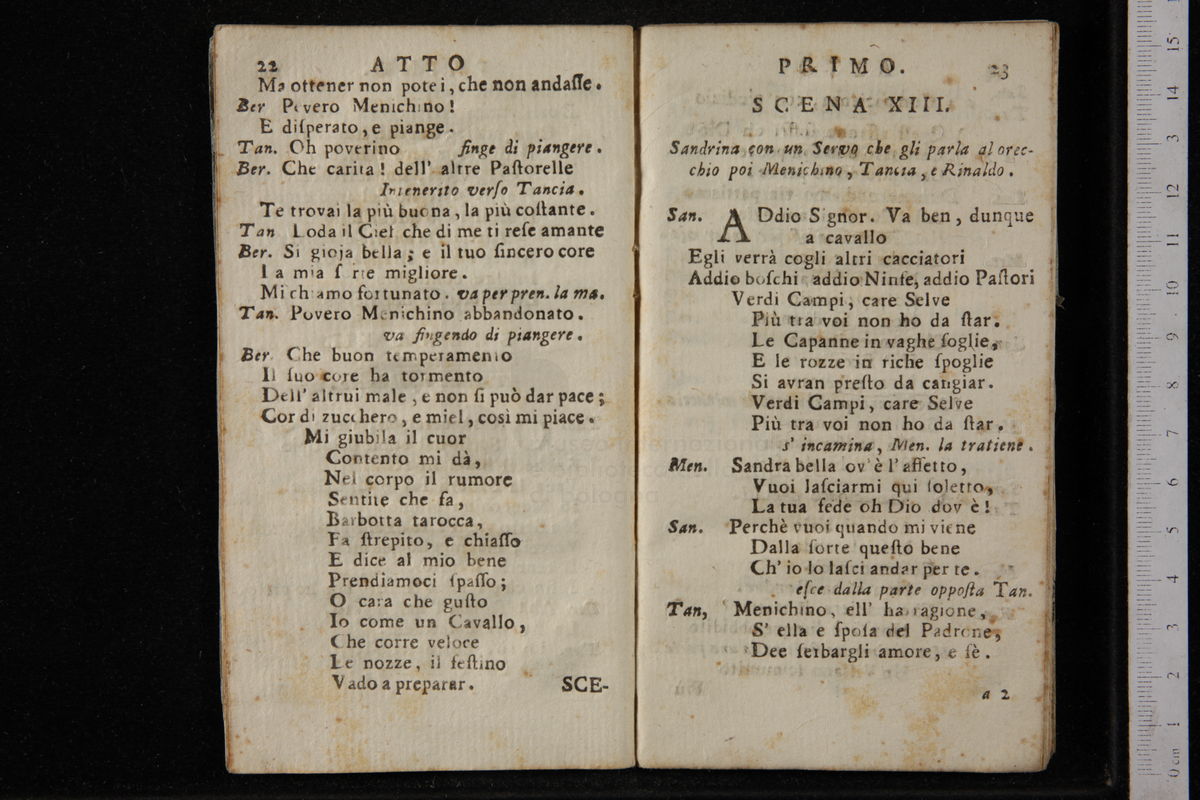 22 ATTO
Ma ottener non potei, che non andaſſe.
Ber Povero Menichino!
E diſperato, e piange.
Tan. Oh poverino finge di piangere.
Ber. Che carita! dell' altre Paſtorelle
Intenerito verſo Tancia.
Te trovai la più buona, la più coſtante.
Tan Loda il Ciel che di me ti reſe amante
Ber. Si gioja bella; e il tuo ſincero core
La mia ſorte migliore.
Mi chiamo fortunato. va per pren. la ma.
Tan. Povero Menichino abbandonato.
va fingendo di piangere.
Ber. Che buon temperamento
Il ſuo core ha tormento
Dell' altrui male, e non ſi può dar pace;
Cor di zucchero, e miel, così mi piace.
Mi giubila il cuor
Contento mi dà,
Nel corpo il rumore
Sentite che fa,
Barbotta tarocca,
Fa ſtrepito, e chiaſſo
E dice al mio bene
Prendiamoci ſpaſſo;
O cara che guſto
Io come un Cavallo,
Che corre veloce
Le nozze, il feſtino
Vado a preparar. SCE-
PRIMO. 23
SCENA XIII.
Sandrina con un Servo che gli parla al orec-
chio poi Menichino, Tancia, e Rinaldo.
San. ADdio Signor. Va ben, dunque
a cavallo
Egli verrà cogli altri cacciatori
Addio boſchi addio Ninfe, addio Paſtori
Verdi Campi, care Selve
Più tra voi non ho da ſtar.
Le Capanne in vaghe ſoglie,
E le rozze in riche ſpoglie
Si avran preſto da cangiar.
Verdi Campi, care Selve
Più tra voi non ho da ſtar.
s' incamina, Men. la tratiene.
Men. Sandra bella ov' è l' affetto,
Vuoi laſciarmi qui ſoletto,
La tua fede oh Dio dov è!
San. Perchè vuoi quando mi viene
Dalla ſorte queſto bene
Ch' io lo laſci andar per te.
eſce dalla parte oppoſta Tan.
Tan, Menichino, ell' ha ragione,
S' ella e ſpoſa del Padrone,
Dee ſerbargli amore, e fè.
a 2